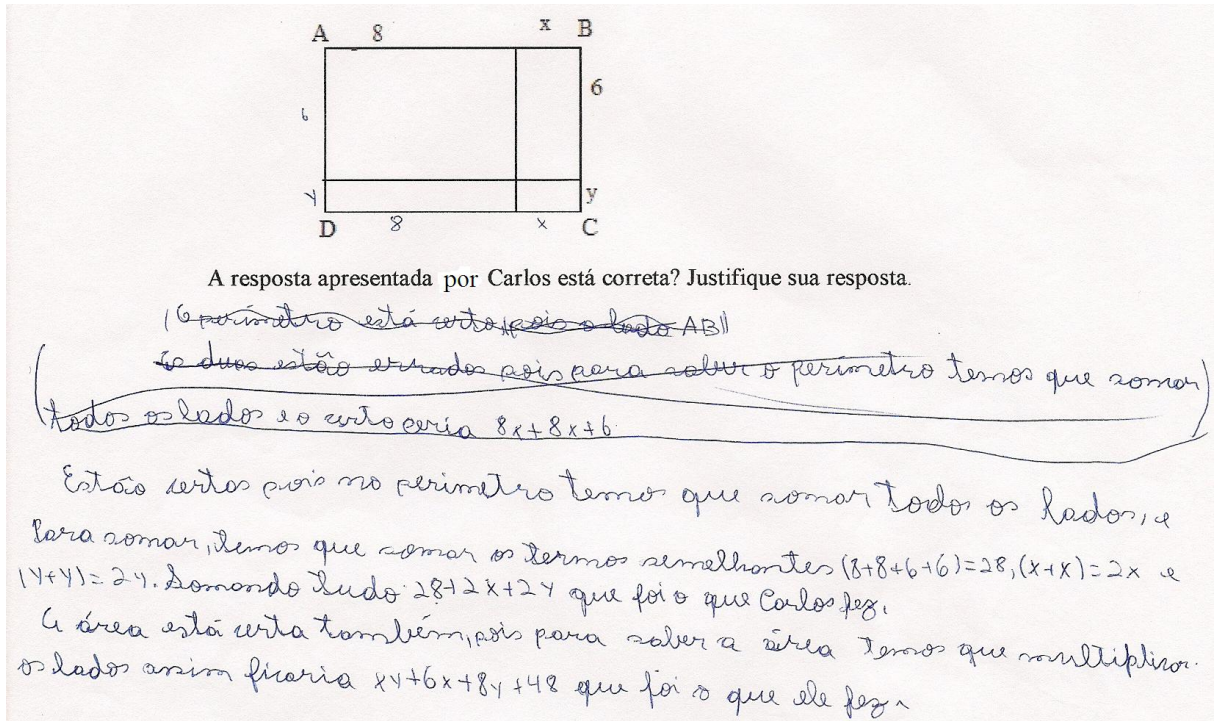 A 8 x B
6 6
y y
D 8 x C
A resposta apresentada por Carlos está correta? Justifique sua resposta.
(O perímetro está certo, pois o lado AB||
os duas estão errados pois para saber o perímetro temos que somar
todos os lados e o certo ceria 8x+8x+6
Estão certas pois no perimetro temos que somar todos os lados, e
Para somar, temos que somar os termos semelhantes (8+8+6+6)=28, (x+x)=2x e
(y+y)=2y. Somando tudo 28+2x+2y que foi o que Carlos fez.
A área está certa também, pois para saber a área temos que multiplicar
os lados assim ficaria xy+6x+8y+48 que foi o que ele fez.